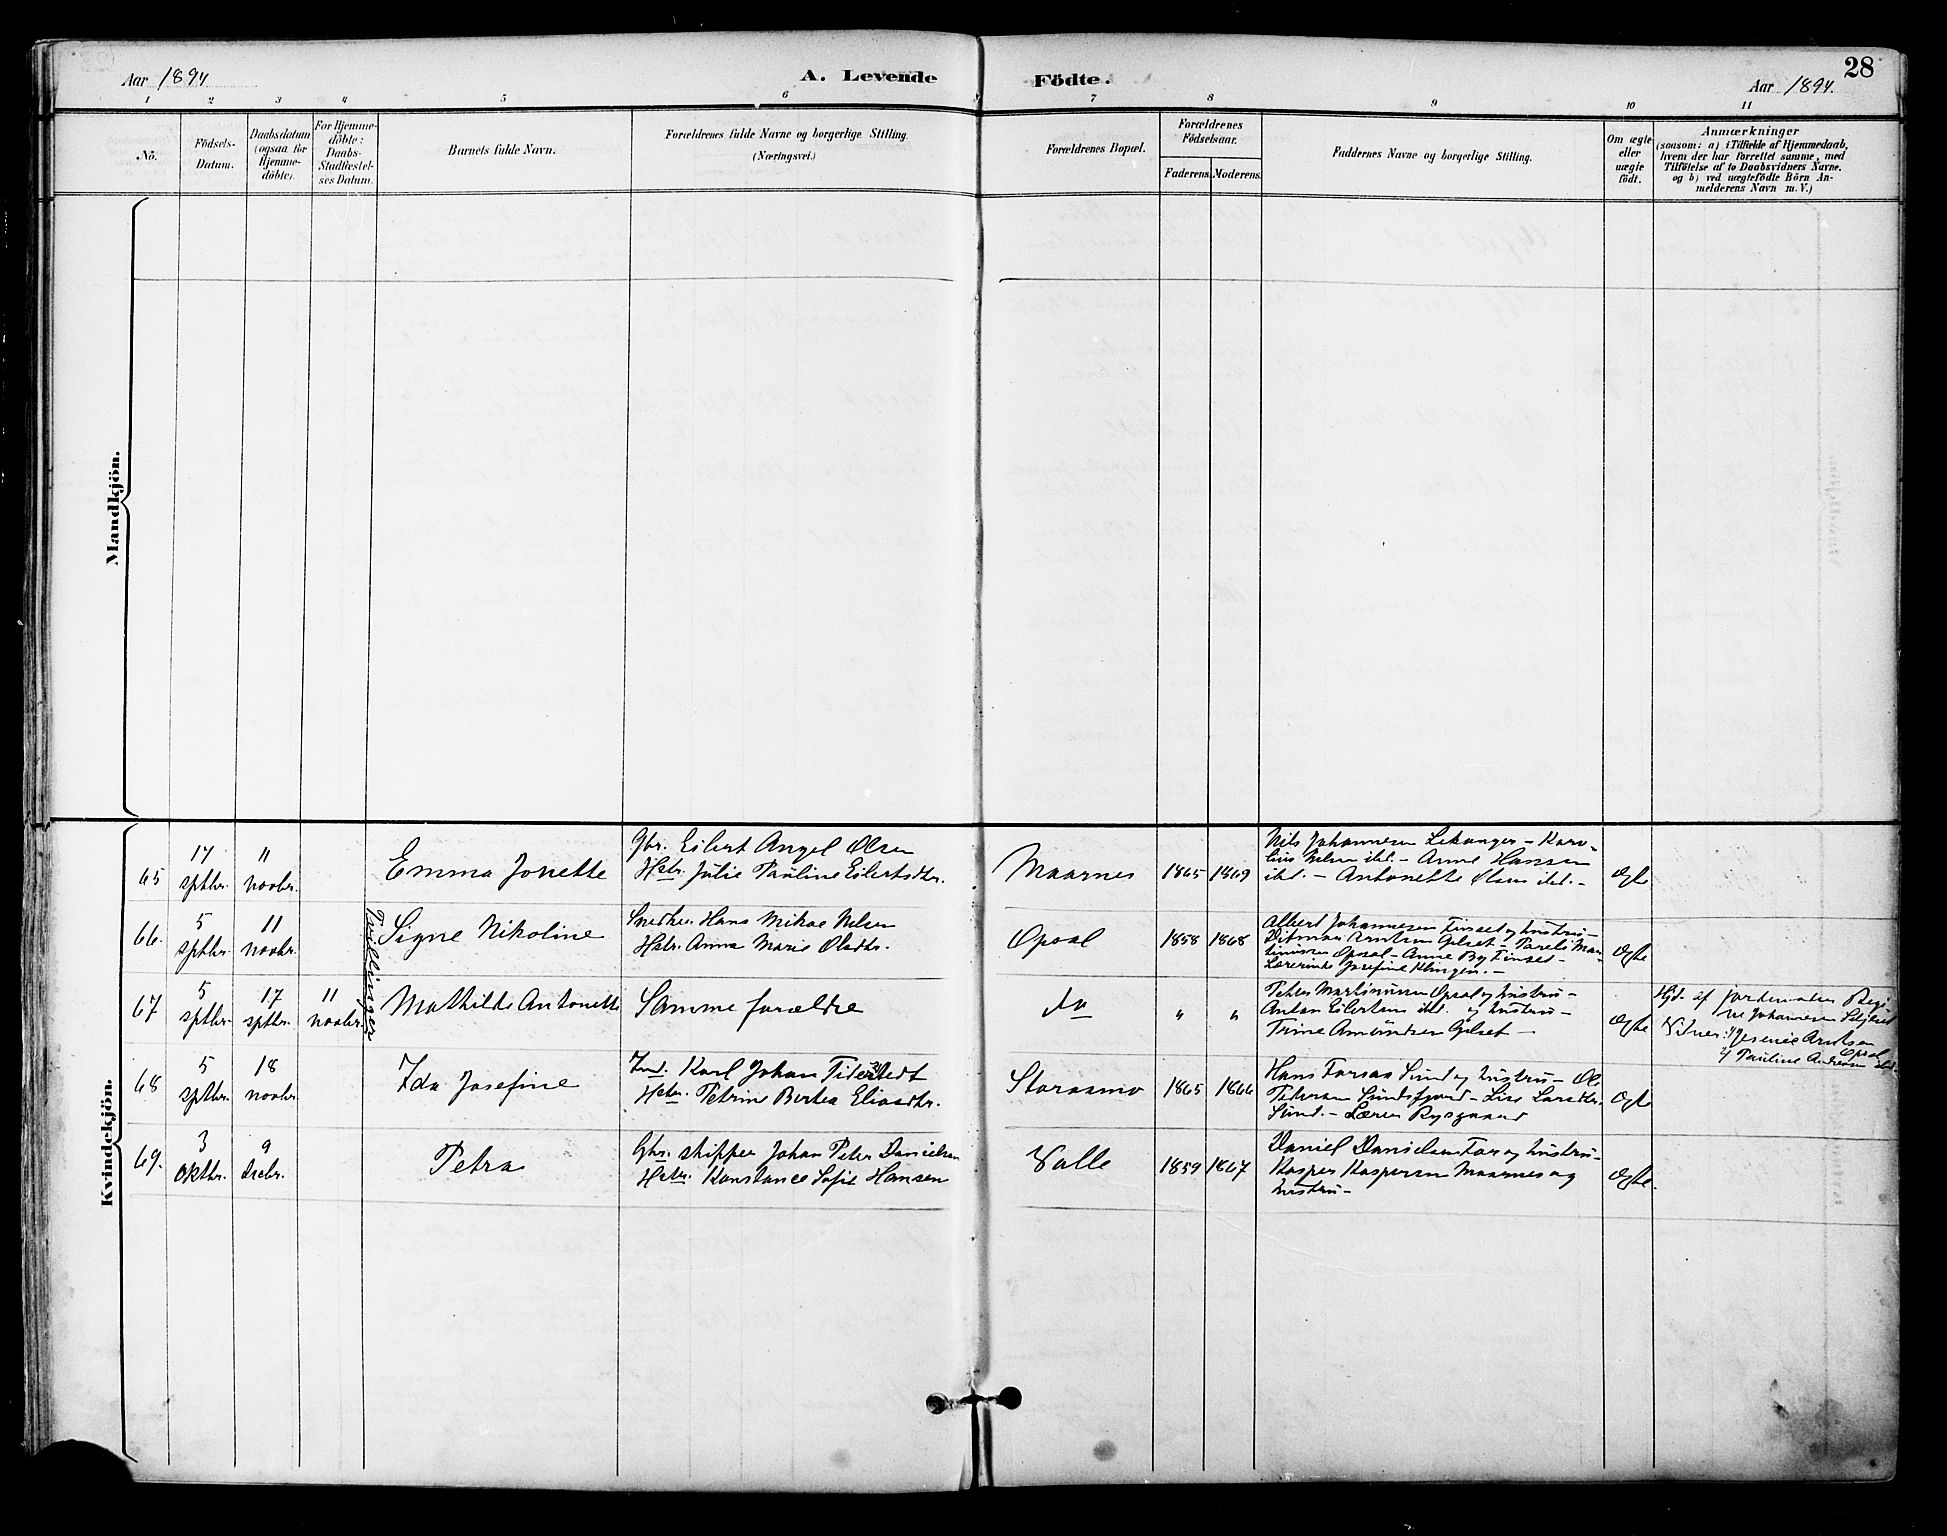 28
Aar 1894
A. Levende Födte.
Aar 1894.
1 2 3 4 5 6 7 8 9 10 11
No.
Födsels-
Datum.
Daabsdatum
(ogsaa for
Hjemme-
döbte).
For Hjemme-
döbte:
Daabs-
Stadfæstel-
ses Datum.
Barnets fulde Navn.
Forældrenes fulde Navne og borgerlige Stilling.
(Næringsvei.)
Forældrenes Bopæl.
Forældrenes
Födselsaar.
Faderens. Moderens.
Faddernes Navne og borgerlige Stilling.
Om ægte
eller
uægte
födt.
Anmærkninger
(saasom: a) i Tilfælde af Hjemmedaab,
hvem der har forrettet samme, med
Tilföielse af to Daabsvidners Navne,
og b) ved uægtefödte Börn An-
melderens Navn m. V.)
Mandkjön.
Kvindekjön.
65
17
sptbr.
11
novbr.
Emma Jonette
Gbr. Eilert Angel Olsen
Hstr. Julie Pauline Eilertsdtr.
Maarnes
1865 1869
Nils Johannesen Lekanger - Karo-
lius Nelsen ibd. - Anne Hansen
ibd. - Antonette Olsen ibd. -
Ægte
66.
5
sptbr.
11
novbr.
Tvillinger
Signe Nikoline
Snedker Hans Mikae Nilsen
Hstr. Anna Marie Olsdtr.
Opsal
1858 1868
Albert Johannesen Finset og hustru -
Ditmar Arntsen Gilset - Parelius Mar-
tinusen Opsal - Anne By Finset -
Lærerinde Josefine Klingen. -
Ægte
67
5
sptbr.
17
sptbr.
11
novbr.
Mathilde Antonette
Samme forældre
do
" "
Peter Martinusen Opsal og hustru -
Anton Eilertsen ibd. og hustru -
Trine Amundsen Gilset -
Ægte
Hjd. af Jordemoder Regi-
ne Johannesen
Vidner: 1/ Jesenie Arntsen
Opsal
2/ Pauline Andersen ibd.
68
5
sptbr.
18
novbr.
Ida Josefine
Ind. Karl Johan
Hstr. Petrine Berkea Eliasdtr.
Storosmo
1865 1866
Hans Farsas Sund og hustru - Ole
Pedersen Sundsfjord - Lise Larsdtr.
Sund. - Lærer Rysgaard
Ægte
69.
3
oktbr.
9
decbr.
Petra
Gbr. skipper Johan Peter Danielsen
Hstr. Konstance Sofie Hansen
Valle
1859 1867
Daniel Danielsen Far og hustru -
Kasper Kaspersen Maarnes og
hustru -
Ægte.